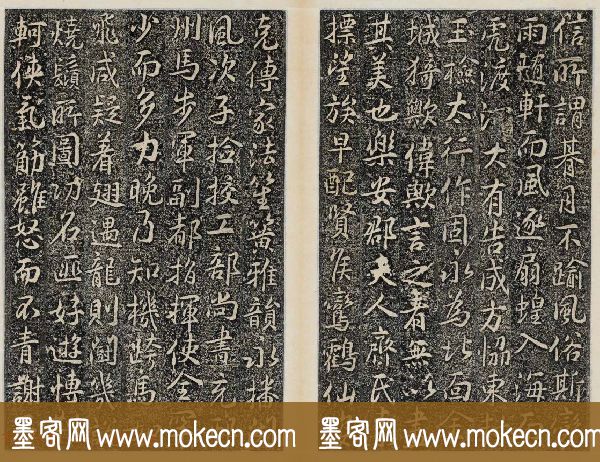 信所謂朞月不踰風俗斯
雨隨軒而風逐扇蝗入海
虎渡江大有告成方協東
玉檢太行作固永為北面金
城猗歟偉歟言之著無以
其美也樂安郡夫人齊氏
摽望族早配賢侯鸞鶴仙
克傳家法笙篁雅韻永播
風次子撿挍工部尚書充
州馬步軍副都指揮使全
少而多力晚乃知機跨馬
飛咸疑著翅遇龍則鬪
燒鬚所圖功名匪好遊
軻俠氣筋雖怒而不青謝
墨客网 www.mokecn.com 墨客网 www.mokecn.com